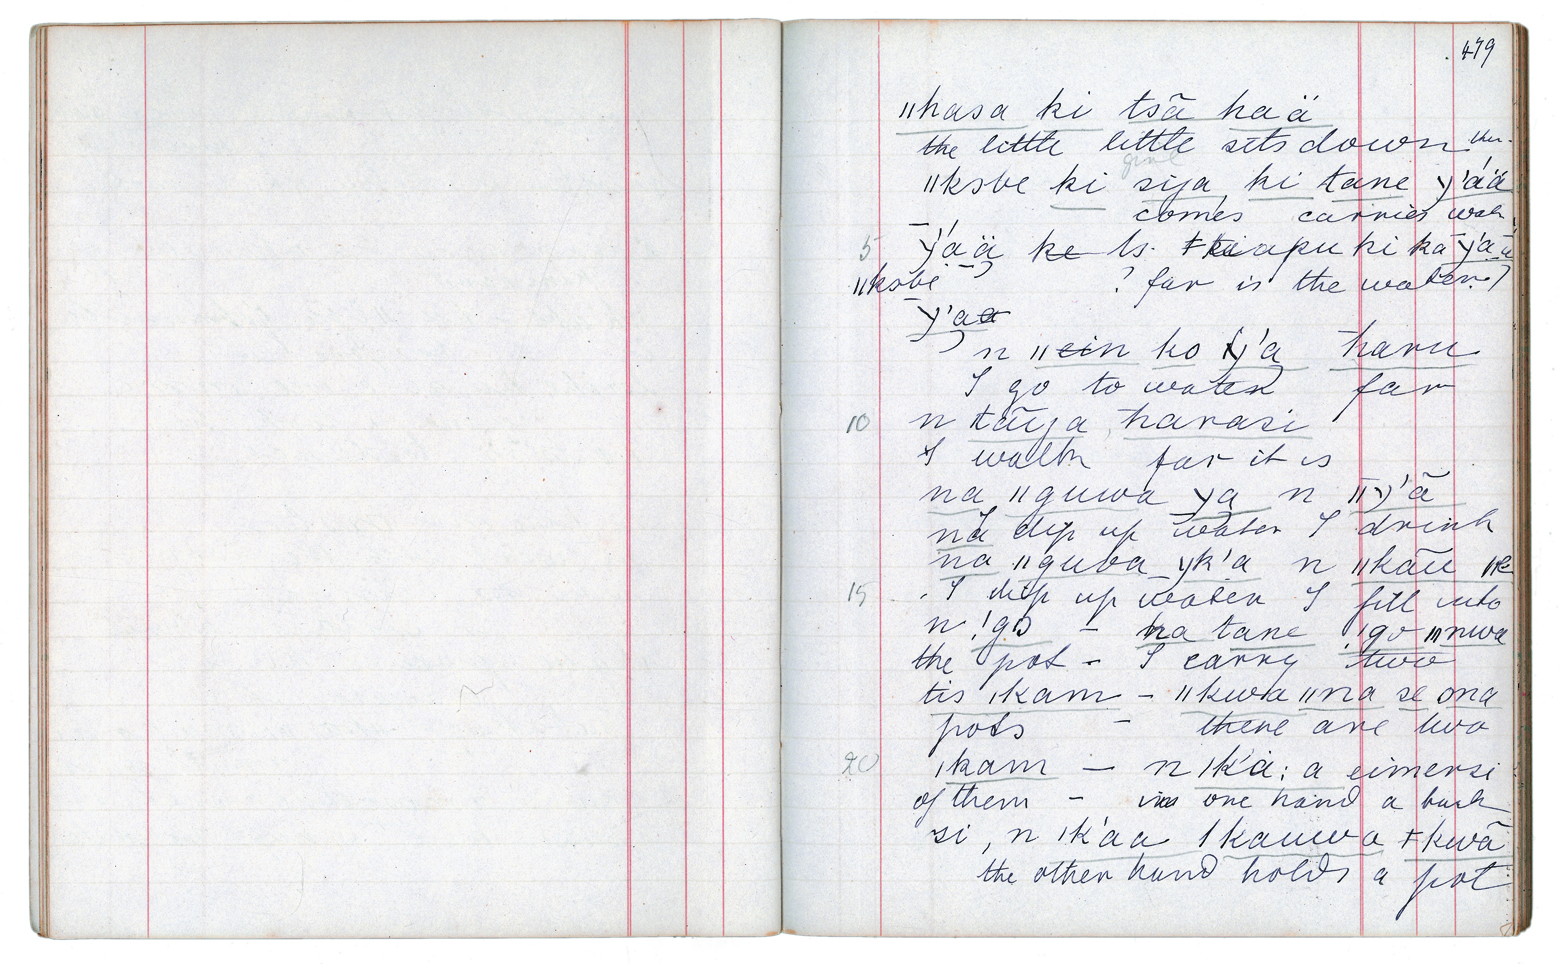 479
ǁhasa ki tsā haä
the little little sets down
girl
ǁksbe ki sija, ki tane y'áä
comes carries
5 y'aä ke ts. ǂ apu ki kā y'ā
ǁksbe ? far is the water?)
y'aa
n ǁein ko y'a haru
I go to water far
10 n tāija, harasi
I walk far it is
na ǁguwa ya n ǁy'ā
na dip up water I drink
na ǁguba yk'a n ǁkāu
15 I dip up water I fill into
n !go – ha tane !go ǁnwa
the pot – I carry two
tis ǀkam – ǁkwa ǁna se ona
pots – there are two
20 ǀkam – n ǀk'a: a eimersi
of them – in one hand a
si, n ǀk'aa ǀkauwa ǂkwā
the other hand holds a pot